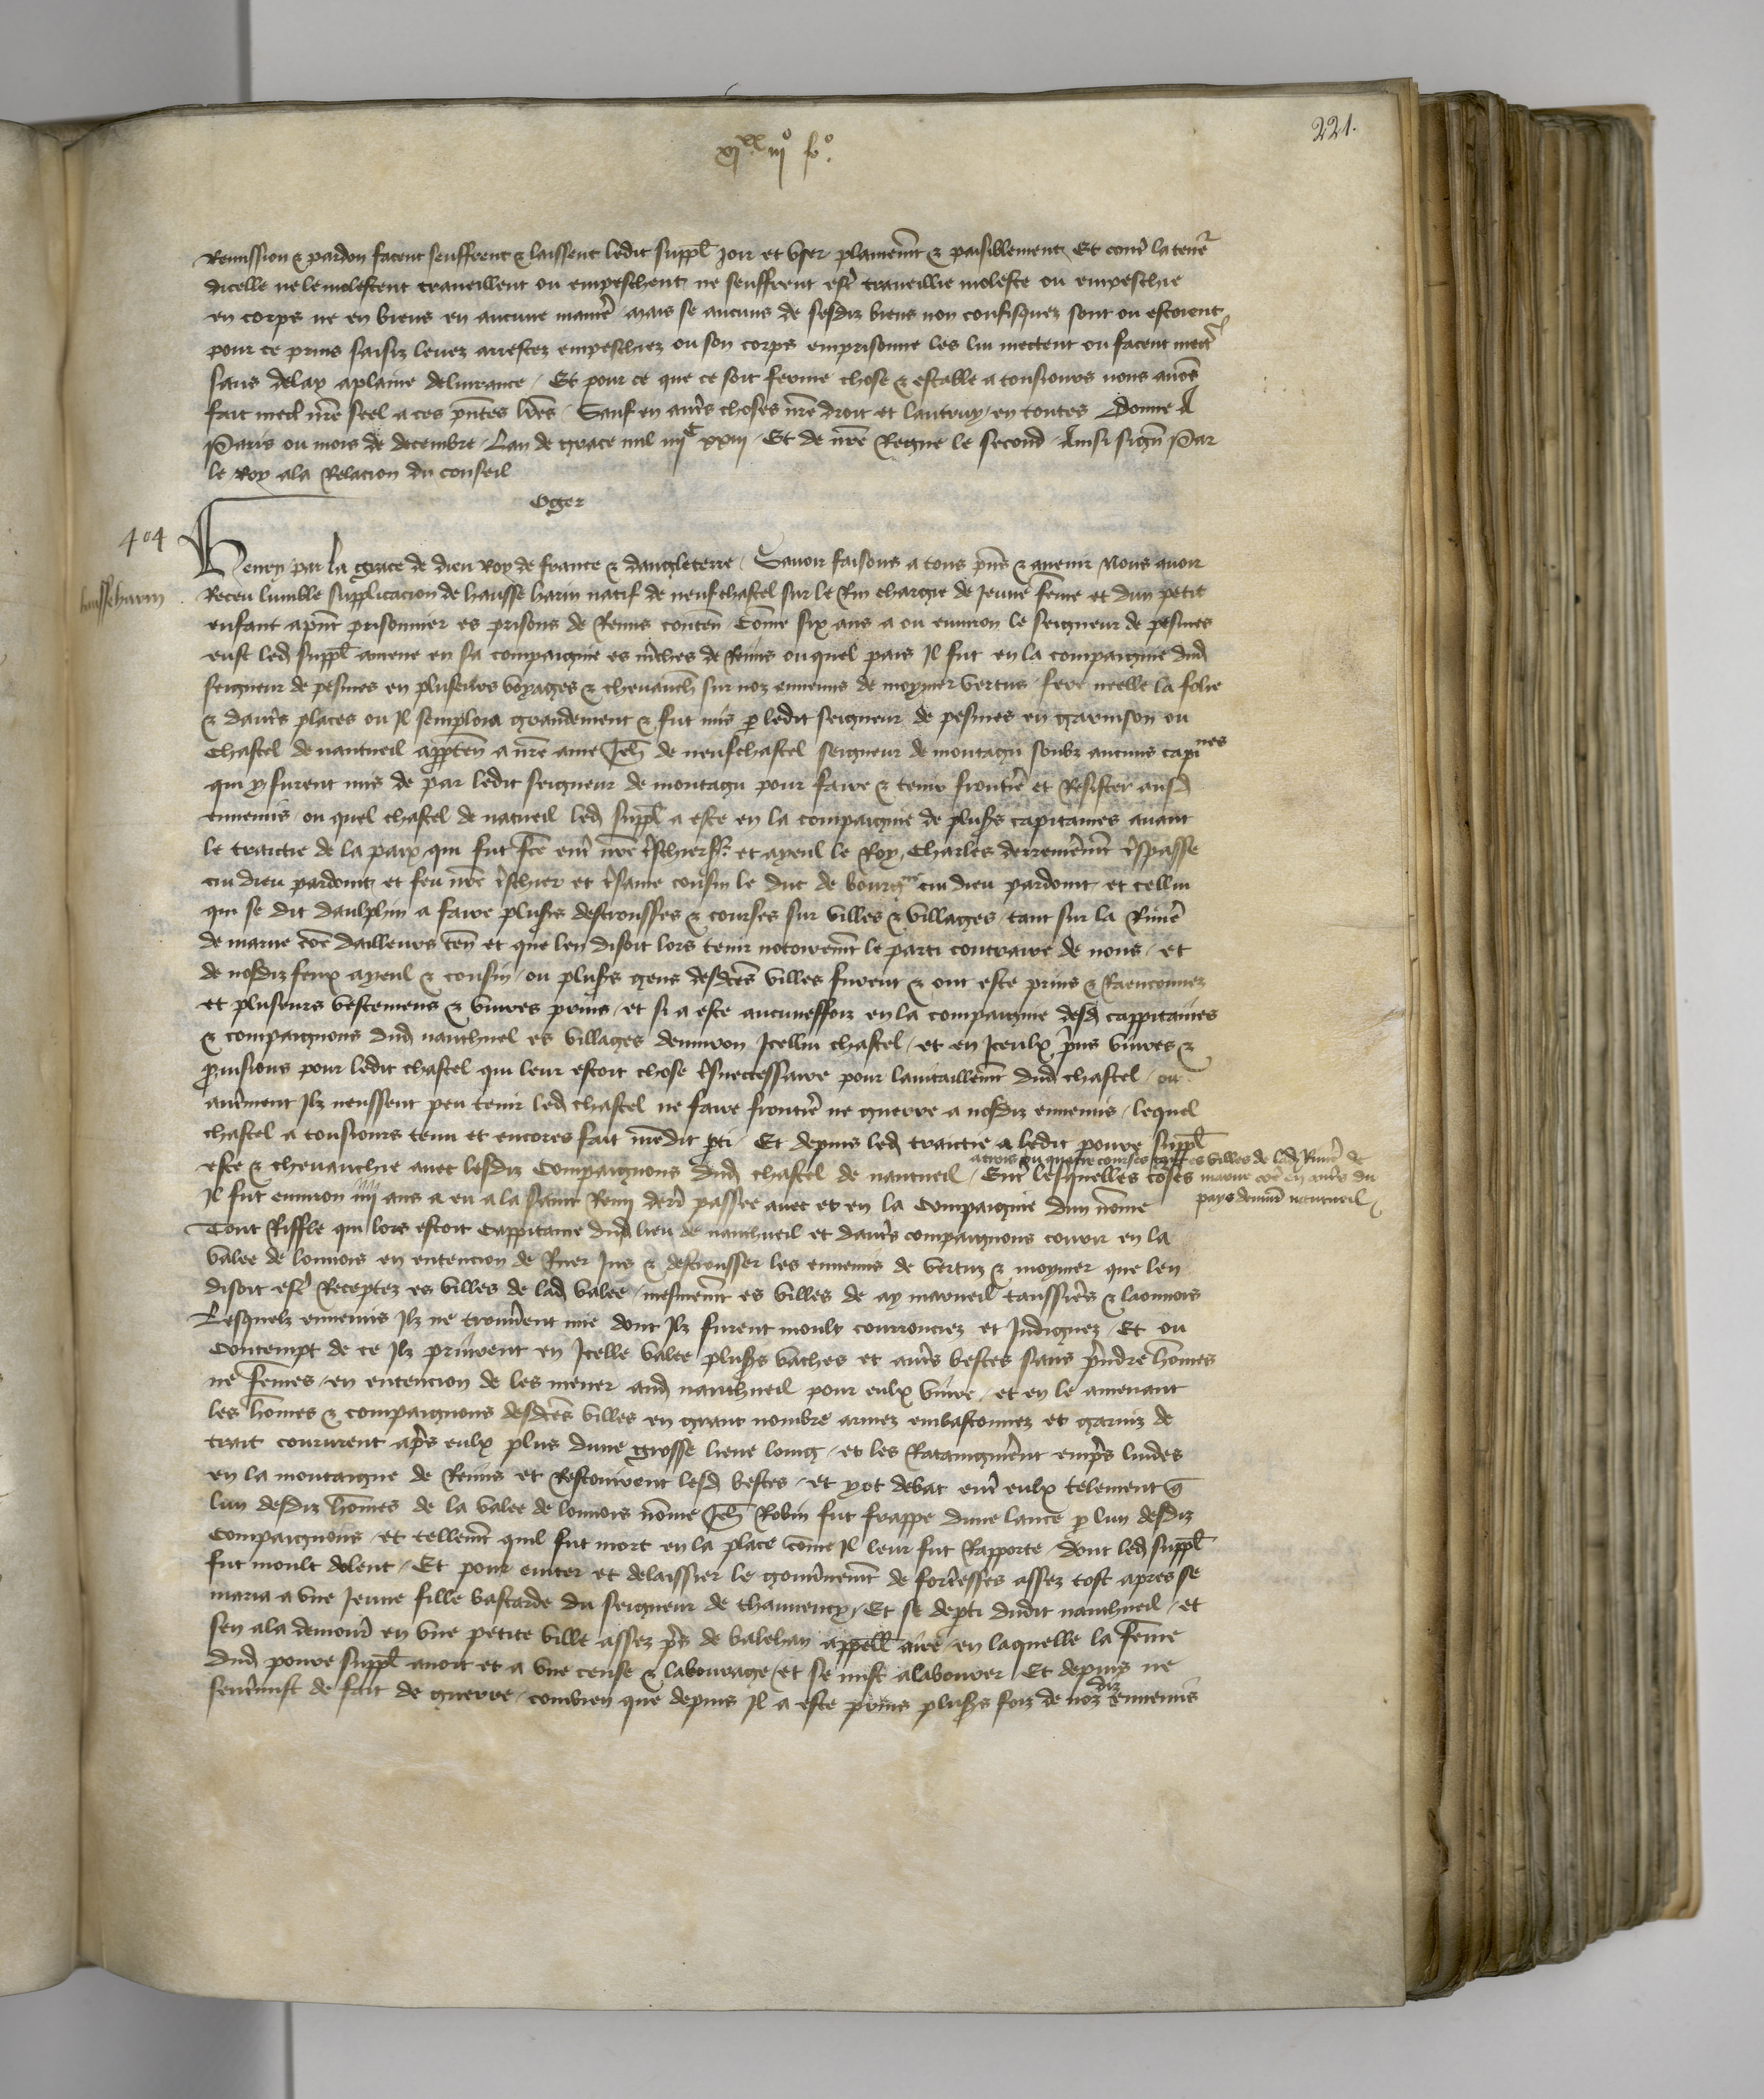 221.
xi xx iiio fo.
Remission & pardon facent seuffrent & laissent ledit suppl joir et user plainemt & paisiblement Et contre la teneur
dicelle ne le molestent traveillent ou empeschent ne seuffrent estre traveillie moleste ou empeschie
en corps ne en biens en aucune maniere mais se aucuns de sesdiz biens non confisquez sont ou estoient
pour ce prins saisiz levez arrestez empeschiez ou son corps emprisonne les lui mectent ou facent mectre
sans delay a plaine delivrance / Et pour ce que ce soit ferme chose & estable a tousiours nous avons
fait mectre nre seel a ces pntes lres / Sauf en autres choses nre droit et lautruy en toutes Donne A
Paris ou mois de decembre / Lan de grace mil iiiiC xxiii / Et de nre Regne le second / Ainsi signe Par
le Roy a la Relacion du conseil
Oger
404
Henry par la grace de dieu Roy de france & dangleterre / Savoir faisons a tous pns & avenir Nous avoir
hansseharin
Receu lumble supplicacion de hansse harin natif de neufchastel sur le Rin chargie de jeune feme et dun petit
enfant a pnt prisonnier es prisons de Reims conten Come six ans a ou environ le seigneur de pesmes
eust led suppl amene en sa compaignie es mches de Reims ouquel pais Il fut en la compaignie dud
seigneur de pesmes en plusieurs voyages & chevauch sur noz ennemis de moymer vertus / fere neelle la folie
& dautres places ou Il semploia grandement & fut mis p ledit seigneur de pesmes en garnison ou
Chastel de nantueil apptenn a nre ame Jeh de neufchastel seigneur de montagu soubz aucuns capines
qui y furent mis de par ledit seigneur de montagu pour faire & tenir frontiere et Resister ausd
ennemis / ou quel chastel de natueil led suppl a este en la compaignie de pluss capitaines avant
le traictie de la paix qui fut fce entre nre tschier sr et ayeul le Roy Charles derrenieremt tspasse
cui dieu pardoint et feu nre tschier et tsame cousin le duc de bourgne cui dieu pardoint et cellui
qui se dit daulphin a faire pluss destrousses & courses sur villes & villages tant sur la Riviere
de marne coe dailleurs ten et que len disoit lors tenir notoiremt le parti contraire de nous / et
de nosdiz feux ayeul & cousin / ou pluss gens desdtes villes furent & ont este prins & Raenconnez
et pluseurs vestemens & vivres prins / et si a este aucuneffoiz en la compaignie desd cappitaines
& compaignons dud nanthuel es villages denviron Icellui chastel / et en Iceulx pris vivres &
pvisions pour ledit chastel qui leur estoit chose tsneccessaire pour lavitaillemt dud chastel / ou
autrement Ilz neussent peu tenir led chastel ne faire frontiere ne guerre a nosdiz ennemis / lequel
chastel a tousiours tenu et encores fait nredit pti / Et depuis led traictie a ledit povre suppl
este & chevauchie avec lesdiz Compaignons dud chastel de nantueil / a trois ou quatre courses es villes de lad Riviere de
marne coe en autres du
pays denviron nantueil /
Entre lesquelles coses
Il fut environ iiii ans a eu a la saint Remy derr passee avec et en la compaignie dun nome
Tout Riffle qui lors estoit Cappitaine dud lieu de nanthueil et dautres compaignons courir en la
valee de lonnois en entencion de Ruer jus & destrousser les ennemis de vertuz & moymer que len
disoit estre Receptez es villes de lad valee / mesmemt es villes de ay mareuil taussieres & laonnois
Lesquelz ennemis Ilz ne trouverent mie dont Ilz furent moult courrouciez et Indignez / Et ou
Contempt de ce Ilz prinrent en Icelle valee pluss vaches et autres bestes sans prendre homes
ne femes / en entencion de les mener aud nanthueil pour eulx vivre / et en le amenant
les homes & compaignons desdtes villes en grant nombre armez embastonnez et garniz de
trait coururent apres eulx plus dune grosse lieue loing / et les Rataingnirent empres ludes
en la montaigne de Reims et Rescouirent lesd bestes / et y ot debat entre eulx telement q
lun desdiz homes de la valee de lonnois nome Jeh Robin fut frappe dune lance p lun desdiz
Compaignons / et tellemt quil fut mort en la place come Il leur fut Rapporte / dont led suppl
fut moult dolent / Et pour eviter et delaissier le gouvernemt de forteresses assez tost apres se
maria a une jeune fille bastarde du seigneur de thauneny / Et se depti dudit nanthueil / et
sen ala demourer en une petite ville assez pres de balehan appelle aire / en laquelle la feme
dud povre suppl avoit et a une cense & labourage / et se mist a labourer Et depuis ne
sentremist de fait de guerre / combien que depuis Il a este prins pluss foiz de nozdiz ennemis